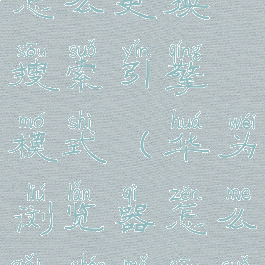 怎么更换
sōu suǒ yǐn qíng
搜索引擎
mó shì huá wéi
模式（华为
liú lǎn qì zěn me
浏览器怎么